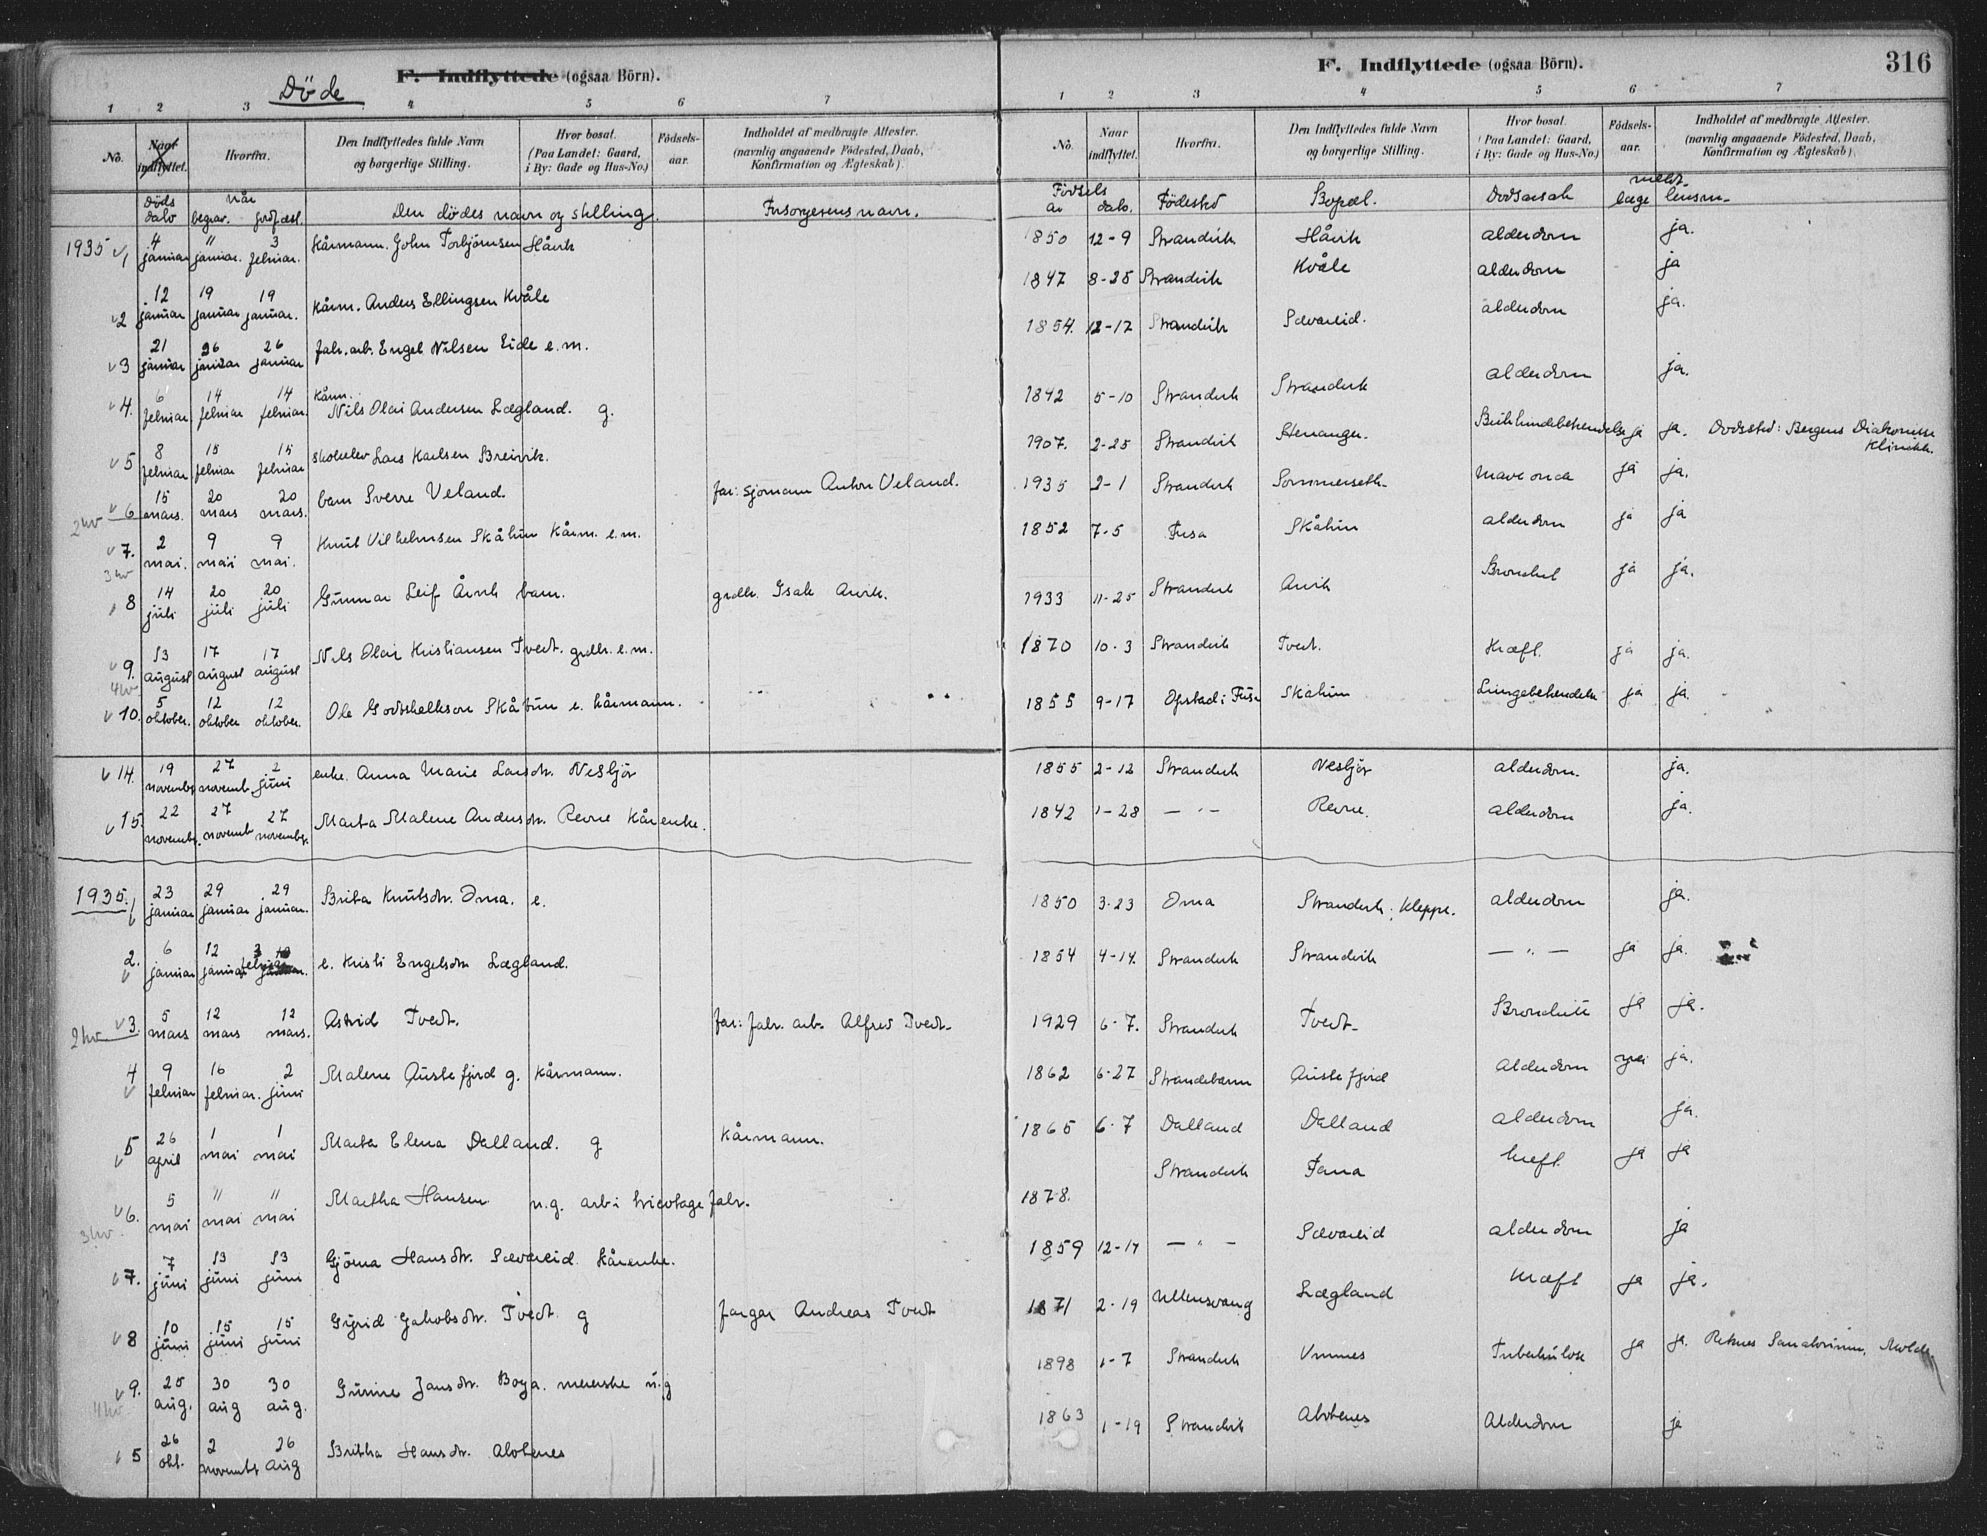 F. Indflyttede (ogsaa Börn).
Döde
1 2 3 4 5 6 7
No.
Naar indflyttet.
Hvorfra.
Den Indflyttedes fulde Navn og borgerlige Stilling.
Hvor bosat. (Paa Landet: Gaard, i By: Gade og Hus-No.)
Födsels-aar.
Indholdet af medbragte Attester. (navnlig angaaende Födested, Daab, Konfirmation og Ægteskab).
Döds dato
når begrav. jordfæst.
Den dödes navn og stilling.
Forsørgerens navn.
1935 1 4 januar 11 januar. 3 februar. Kårmann. John Torbjörnsen Håvik
2 12 januar 19 januar 19 januar. Kårm. Anders Ellingsen Kvåle
3 21 januar 26 januar 26 januar fabr. arb. Engel Nilsen Eide e. m.
4. 6 februar 14 februar 14 februar. Kårm. Nils Olai Andersen Lægland. g.
5 8 februar 15 februar 15 februar Lars Karlsen Breivik.
2 kv 6 15 mars. 20 mars 20 mars. barn Sverre Veland. far: sjømann Anton Veland.
7. 2 mai. 9 mai 9 mai. Knut Vilhelmsen Skåtun Kårm. e. m.
3 kv
8 14 juli 20 juli 20 juli Gunnar Leif Årvik barn. grdbr. Isak Arvik.
9. 13 august 17 august 17 august Nils Olai Kristiansen Tvedt. grdbr. e. m.
4 kv.
10. 5 oktober. 12 oktober 12 oktober. Ole Godtskalkson Skåtun e. kårmann.
14. 19 november 27 novemb. 2 juni enke. Anna Marie Larsdtr. Nesbjör
15. 22 novembr. 27 novemb 27 november. Marta Malene Andersdtr. Revne Kårenke.
1935. 1 23 januar 29 januar 29 januar. Brita Knutsdtr. Oma. e.
2. 6 januar 12 januar 3 februar e. Kristi Engelsdtr Lægland.
2 kv 3. 5 mars 12 mars 12 mars. Astrid Tvedt. far: fabr. arb. Alfred Tvedt.
4 9 februar 16 februar. 2 juni Malene Austefjord g. kårmann.
5 26 april 1 mai 1 mai Marta Elena Dalland. g kårmann.
6. 5 mai 11 mai 11 mai Martha Hansen u. g. arb i tricotage fabr.
3 kv.
7. 7 juni 13 juni 13 juni Gjöma Hansdtr. Sævareid. Kårenke.
8 10 juni 15 juni 15 juni Gyrid Jakobsdtr. Tvedt. g Andreas Tvedt
9. 25 aug. 30 aug 30 aug. Gurine Jansdtr. Boga. meierske u. g
4 kv.
5 26 okt. 2 novembr 26 aug Britha Hansdtr. Alvtenes
F. Indflyttede (ogsaa Börn).
316
1 2 3 4 5 6 7
No.
Naar indflyttet.
Hvorfra.
Den Indflyttedes fulde Navn og borgerlige Stilling.
Hvor bosat. (Paa Landet: Gaard, i By: Gade og Hus-No.)
Födsels-aar.
Indholdet af medbragte Attester. (navnlig angaaende Födested, Daab, Konfirmation og Ægteskab).
Födsels år dato. Födested Bopæl. Dödsårsak meldt læge lensm.
1850 12-9 Strandvik Håvik alderdom ja.
1847 8-28 Strandvik Kvåle alderdom ja
1854. 12-17 Strandvik Sævareid. alderdom ja.
1842 5-10 Strandvik Strandvik alderdom ja.
1907. 2-25 Strandvik Stenanger. Bukhindebetendelse ja ja. Dødssted: Bergens Diakonisse Klinikk.
1935 2-1 Strandvik Sommerseth. Maveonde ja ja.
1852 7-5 Fusa Skåtun alderdom ja ja
1933 11-25 Strandvik Arvik Bronchit ja ja.
1870 10-3 Strandvik Tvedt. Kræft. ja ja.
1855 9-17 Opstad i Fusa Skåtun Lungebetendelse ja ja.
1855 2-12 Strandvik Nesbjör alderdom. ja.
1842 1-28 — " — Revne. alderdom ja.
1850 3-23 Oma Strandvik. Kleppe. alderdom ja.
1854 4-14. Strandvik Strandvik — " — ja ja.
1929 6-7. Strandvik Tvedt. Bronchitt ja ja.
1862 6-27 Strandebarm Austefjord Alderdom nei ja.
1865 6-7 Dalland Dalland alderdom ja.
1878. Strandvik Fana Kræft. ja ja
1859 12-17 — " — Sævareid alderdom ja
1871 2-19 Ullensvang Lægland Kræft ja ja.
1898 1-7 Strandvik Vinnes Tuberkulose ja ja. Reknes Sanatorium, Molde
1863 1-19 Strandvik Alvtenes Alderdom ja